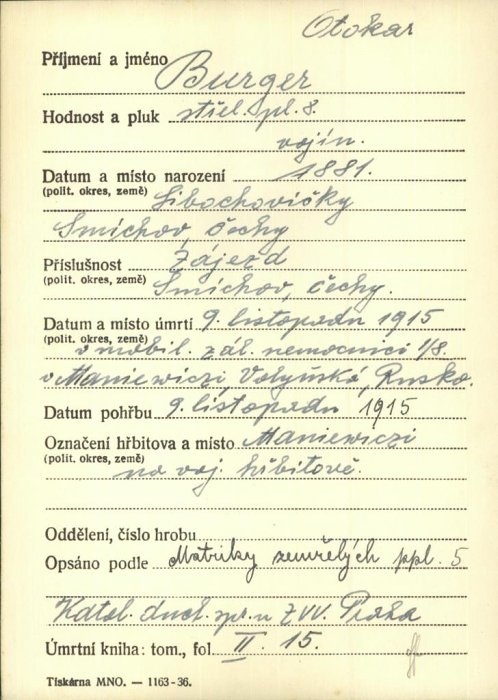 Otokar
Příjmení a jméno Burger
Hodnost a pluk střel. pl. 8.
vojín.
Datum a místo narození 1881.
(polit. okres, země) Libochovičky
Smíchov, Čechy
Příslušnost Zájezd
(polit. okres, země) Smíchov, Čechy.
Datum a místo úmrtí 9. listopadu 1915
(polit. okres, země) v mobil. zál. nemocnici 1/8.
v Maniewiczi, Volyňská, Rusko.
Datum pohřbu 9. listopadu 1915
Označení hřbitova a místo Maniewiczi
(polit. okres, země) na voj. hřbitově.
Oddělení, číslo hrobu
Opsáno podle Matriky zemřelých ppl. 5
Katol. duch. spr. u ZVV. Praha
Úmrtní kniha: tom., fol. II. 15.
Tiskárna MNO. — 1163-36.